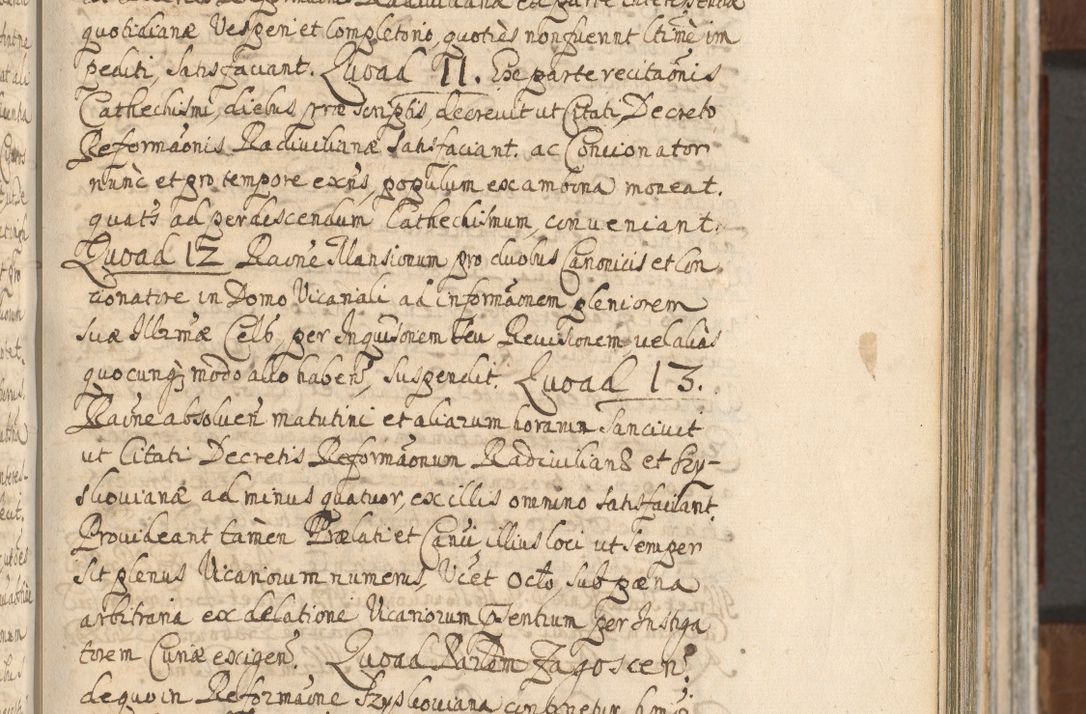 quotidianæ Vesper: et Completorio, quotiẽs non fuerint ltimẽ im
pediti, satisfaciant. Quoad 11. Ex parte recitaõnis
Cathechismi, diebus præscriptis, decrevit ut Citati Decreto
Reformaõnis Radiviliianæ satisfaciant. ac Concionator
nunc et pro tempore exñs, populum ex ambona moneat.
quatñs ad perdiscendum Cathechismum, conveniant.
Quoad 12 Raõne Mansionum pro duobus Canonicis et Con
cionatore in Domo Vicariali ad informaõnem pleniorem
suæ Illrmæ Celb, per Inquisitorem seu Revisionem, vel aliãs
quocunq; modo alio haben̄, suspendit. Quoad 13.
Raõne absolven̄ matutini et aliarum horarum Sancivit
ut Citati Decretis Reformaõnum Radivilian& et Szy-
skovianæ ad minus quatuor, ex illis omnino satisfaciant.
Provideant tamen Prælati et Canci illius loci ut semper
sit plenus Vicariorum numerus, Vicet Octo, sub pæna
arbitraria ex delatione Vicariorum Psentium per Instiga
torem Curiæ exigen̄. Quoad Zagoscen̄.
de quo in Reformaõne Szyskoviana continetur